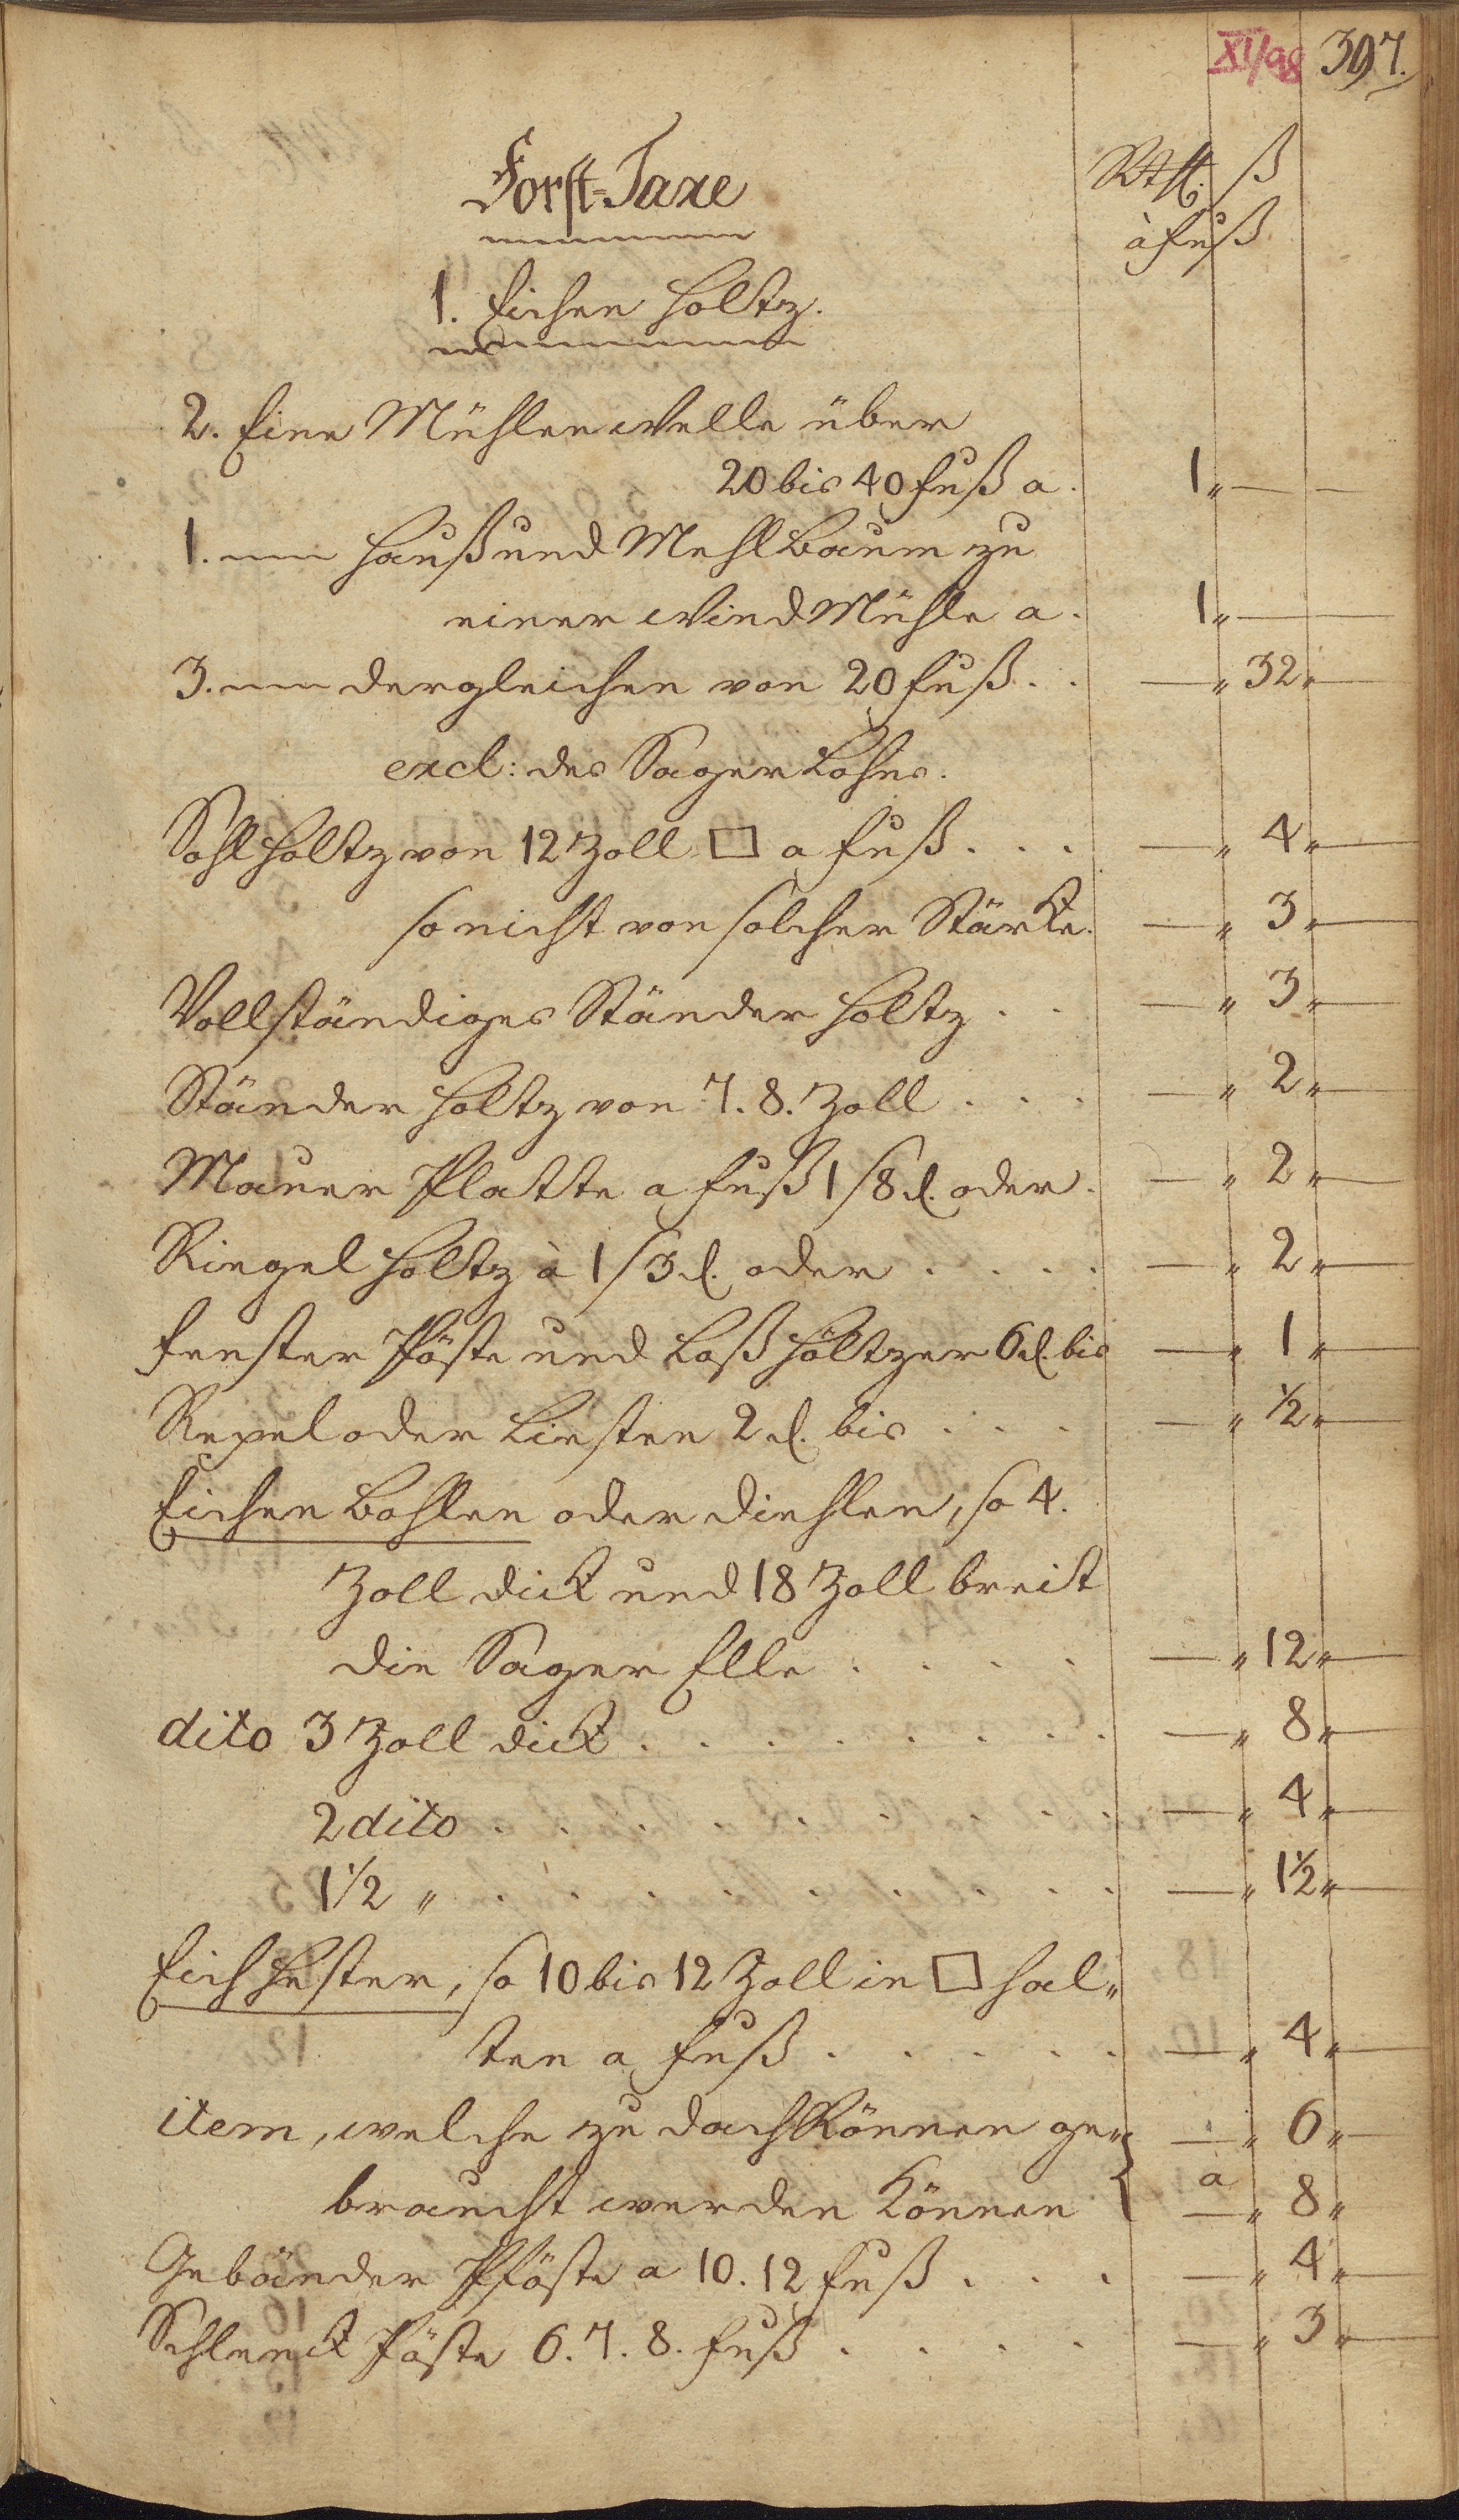 XI/98 397.
Forst-Taxe
Rthl. ß
à Fuß
1. Eichen Holtz.
2. Eine Mühlen Welle über
20 bis 40 Fuß a. 1 „ — —
1. — Hauß und Mehl Baum zu
einer Wind Mühle a. 1 „ —
3. — dergleichen von 20 Fuß . . — „ 32 „ —
excl: des Sager Lohns.
Sohl Holtz von 12 Zoll □ a Fuß . . . — „ 4 „ —
so nicht von solcher Stärcke. — „ 3 „ —
Vollständiges Ständer Holtz . . — „ 3 „ —
Ständer Holtz von 7. 8. Zoll . . . — „ 2 „ —
Mauer Platte a Fuß 1 ß 8 d. oder. — „ 2 „ —
Riegel Holtz à 1 ß 3 d. oder . . . . — „ 2 „ —
Fenster Pöste und Loß Höltzer 6 d. bis — „ 1 „ —
Repel oder Liesten 2 d. bis . . . — „ ½ „ —
Eichen Bohlen oder Diehlen, so 4.
Zoll dick und 18 Zoll breit
die Sager Elle . . . . — „ 12 „ —
dito 3 Zoll dick . . . . . . . . — „ 8 „ —
2 dito . . . . . . . . . — „ 4 „ —
1½ „ . . . . . . . . . — „ 1½ „ —
Eich Hester, so 10 bis 12 Zoll in □ hal„
ten a Fuß . . . . . — „ 4 „ —
item, welche zu Dach Rönnen ge„ — „ 6 „ —
braucht werden können a — „ 8 „
Gebänder Pföste a 10. 12 Fuß . . . — „ 4 „ —
Schleuck Pöste 6. 7. 8. Fuß . . . . — „ 3 „ —